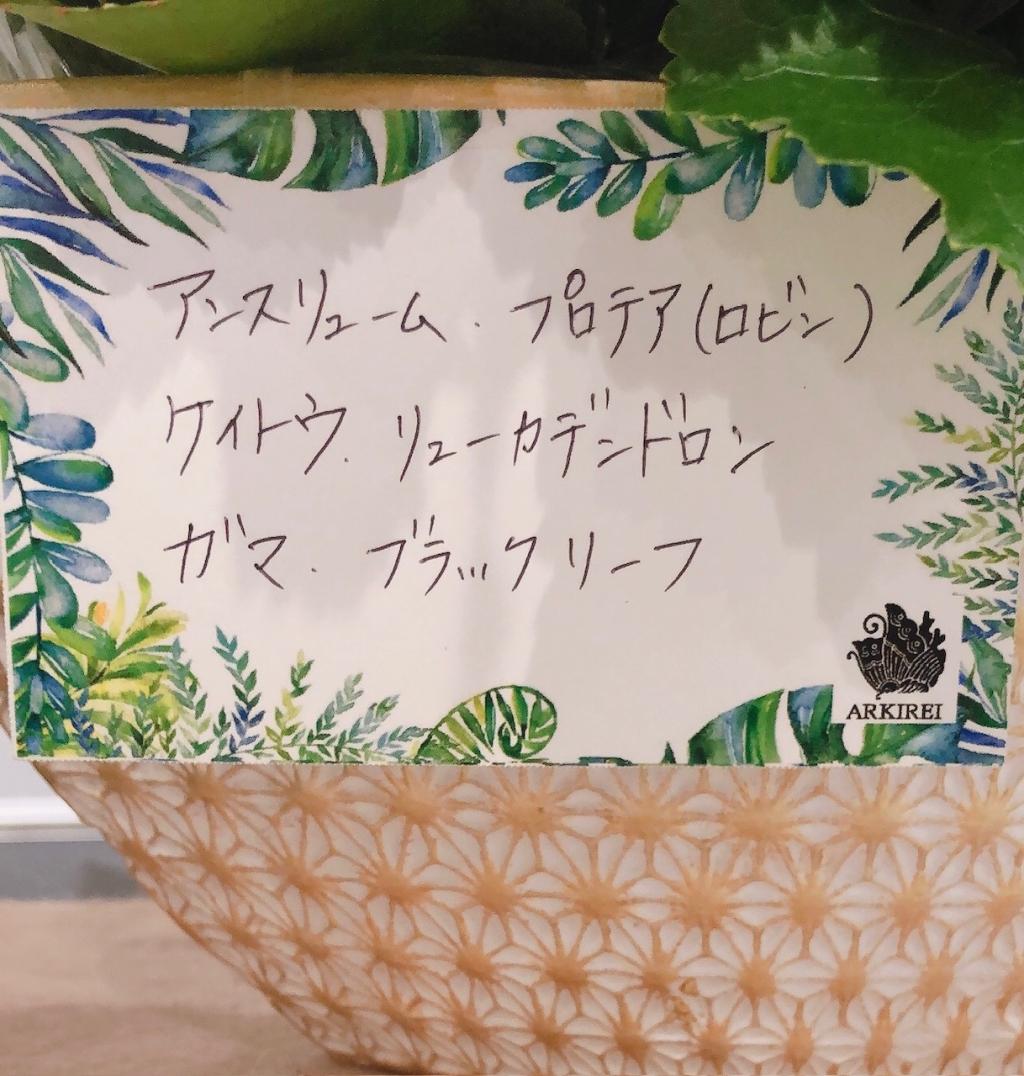 アンスリューム．プロテア(ロビン)
ケイトウ．リューカデンドロン
ガマ．ブラックリーフ
ARKIREI